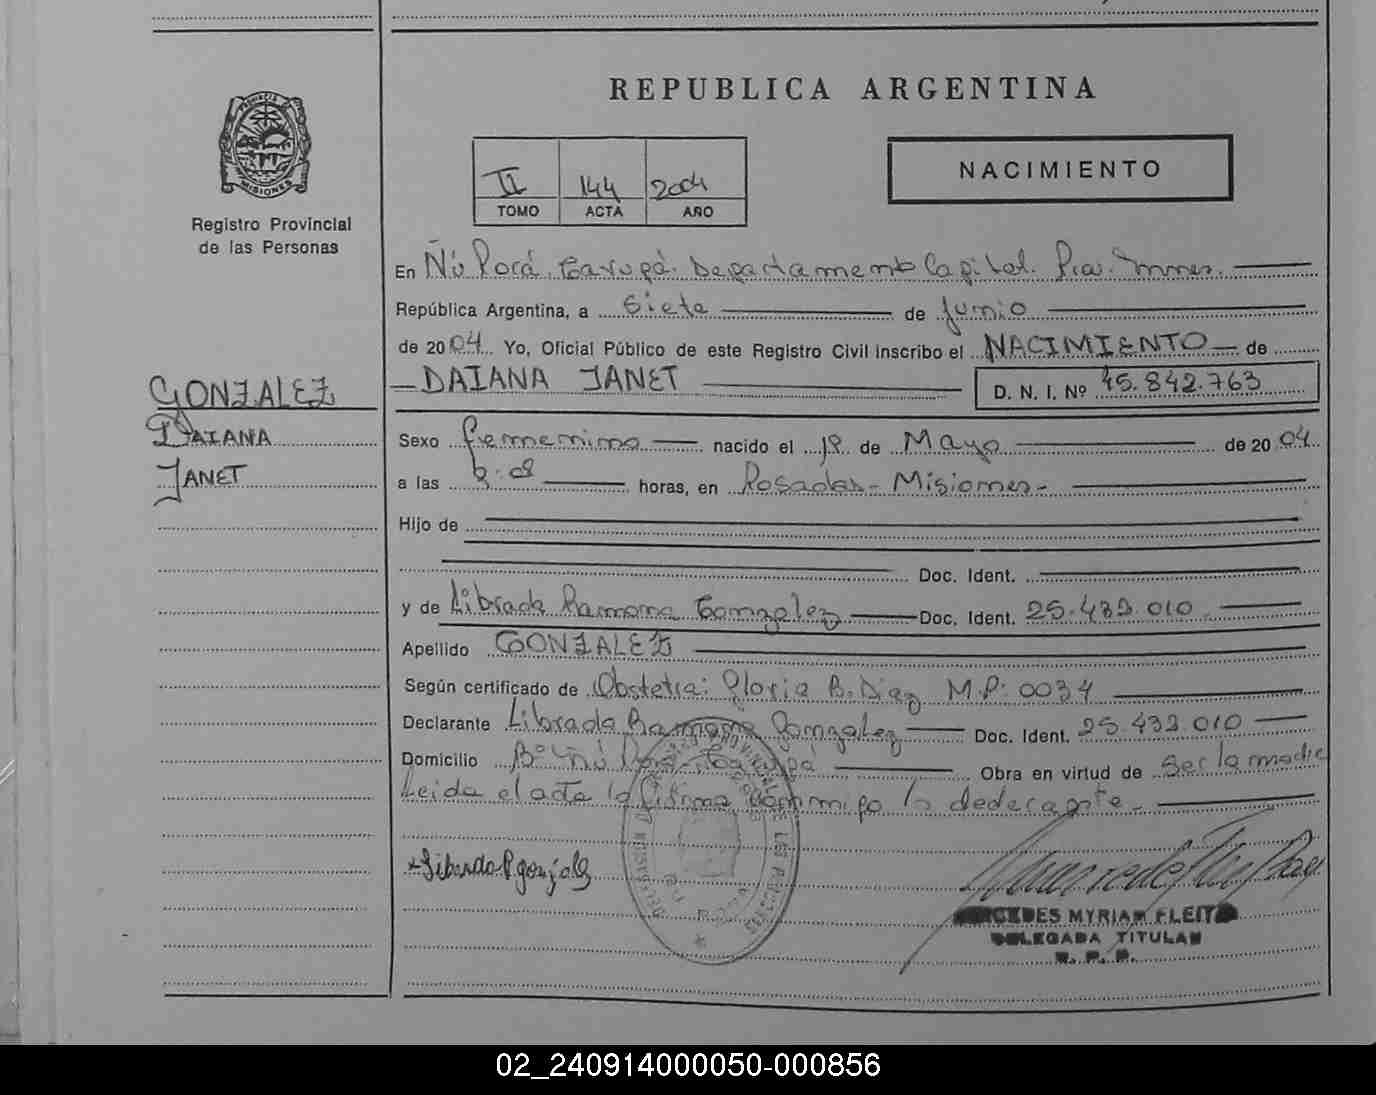 REPUBLICA ARGENTINA
PROVINCIA DE MISIONES
Registro Provincial
de las Personas
II 144 2004
TOMO ACTA AÑO
NACIMIENTO
En Ñú Porá Garupá Departamento Capital Pcia. Mnes.
República Argentina, a siete de Junio
de 2004 Yo, Oficial Público de este Registro Civil inscribo el NACIMIENTO de
DAIANA JANET D. N. I. Nº 45.842.763
GONZALEZ
DAIANA
JANET
Sexo femenino nacido el 19 de Mayo de 2004
a las horas, en Posadas - Misiones -
Hijo de
Doc. Ident.
y de Librada Ramona Gonzalez Doc. Ident. 25.432.010
Apellido GONZALEZ
Según certificado de Obstetra: Gloria B. Diaz M.P: 0034
Declarante Librada Ramona Gonzalez Doc. Ident. 25.432.010
Domicilio Bº Ñú Porá Garupá Obra en virtud de Ser la madre
Leida el acta la firma conmigo la declarante -
MERCEDES MYRIAM FLEITAS
DELEGADA TITULAR
R. P. P.
02_240914000050-000856